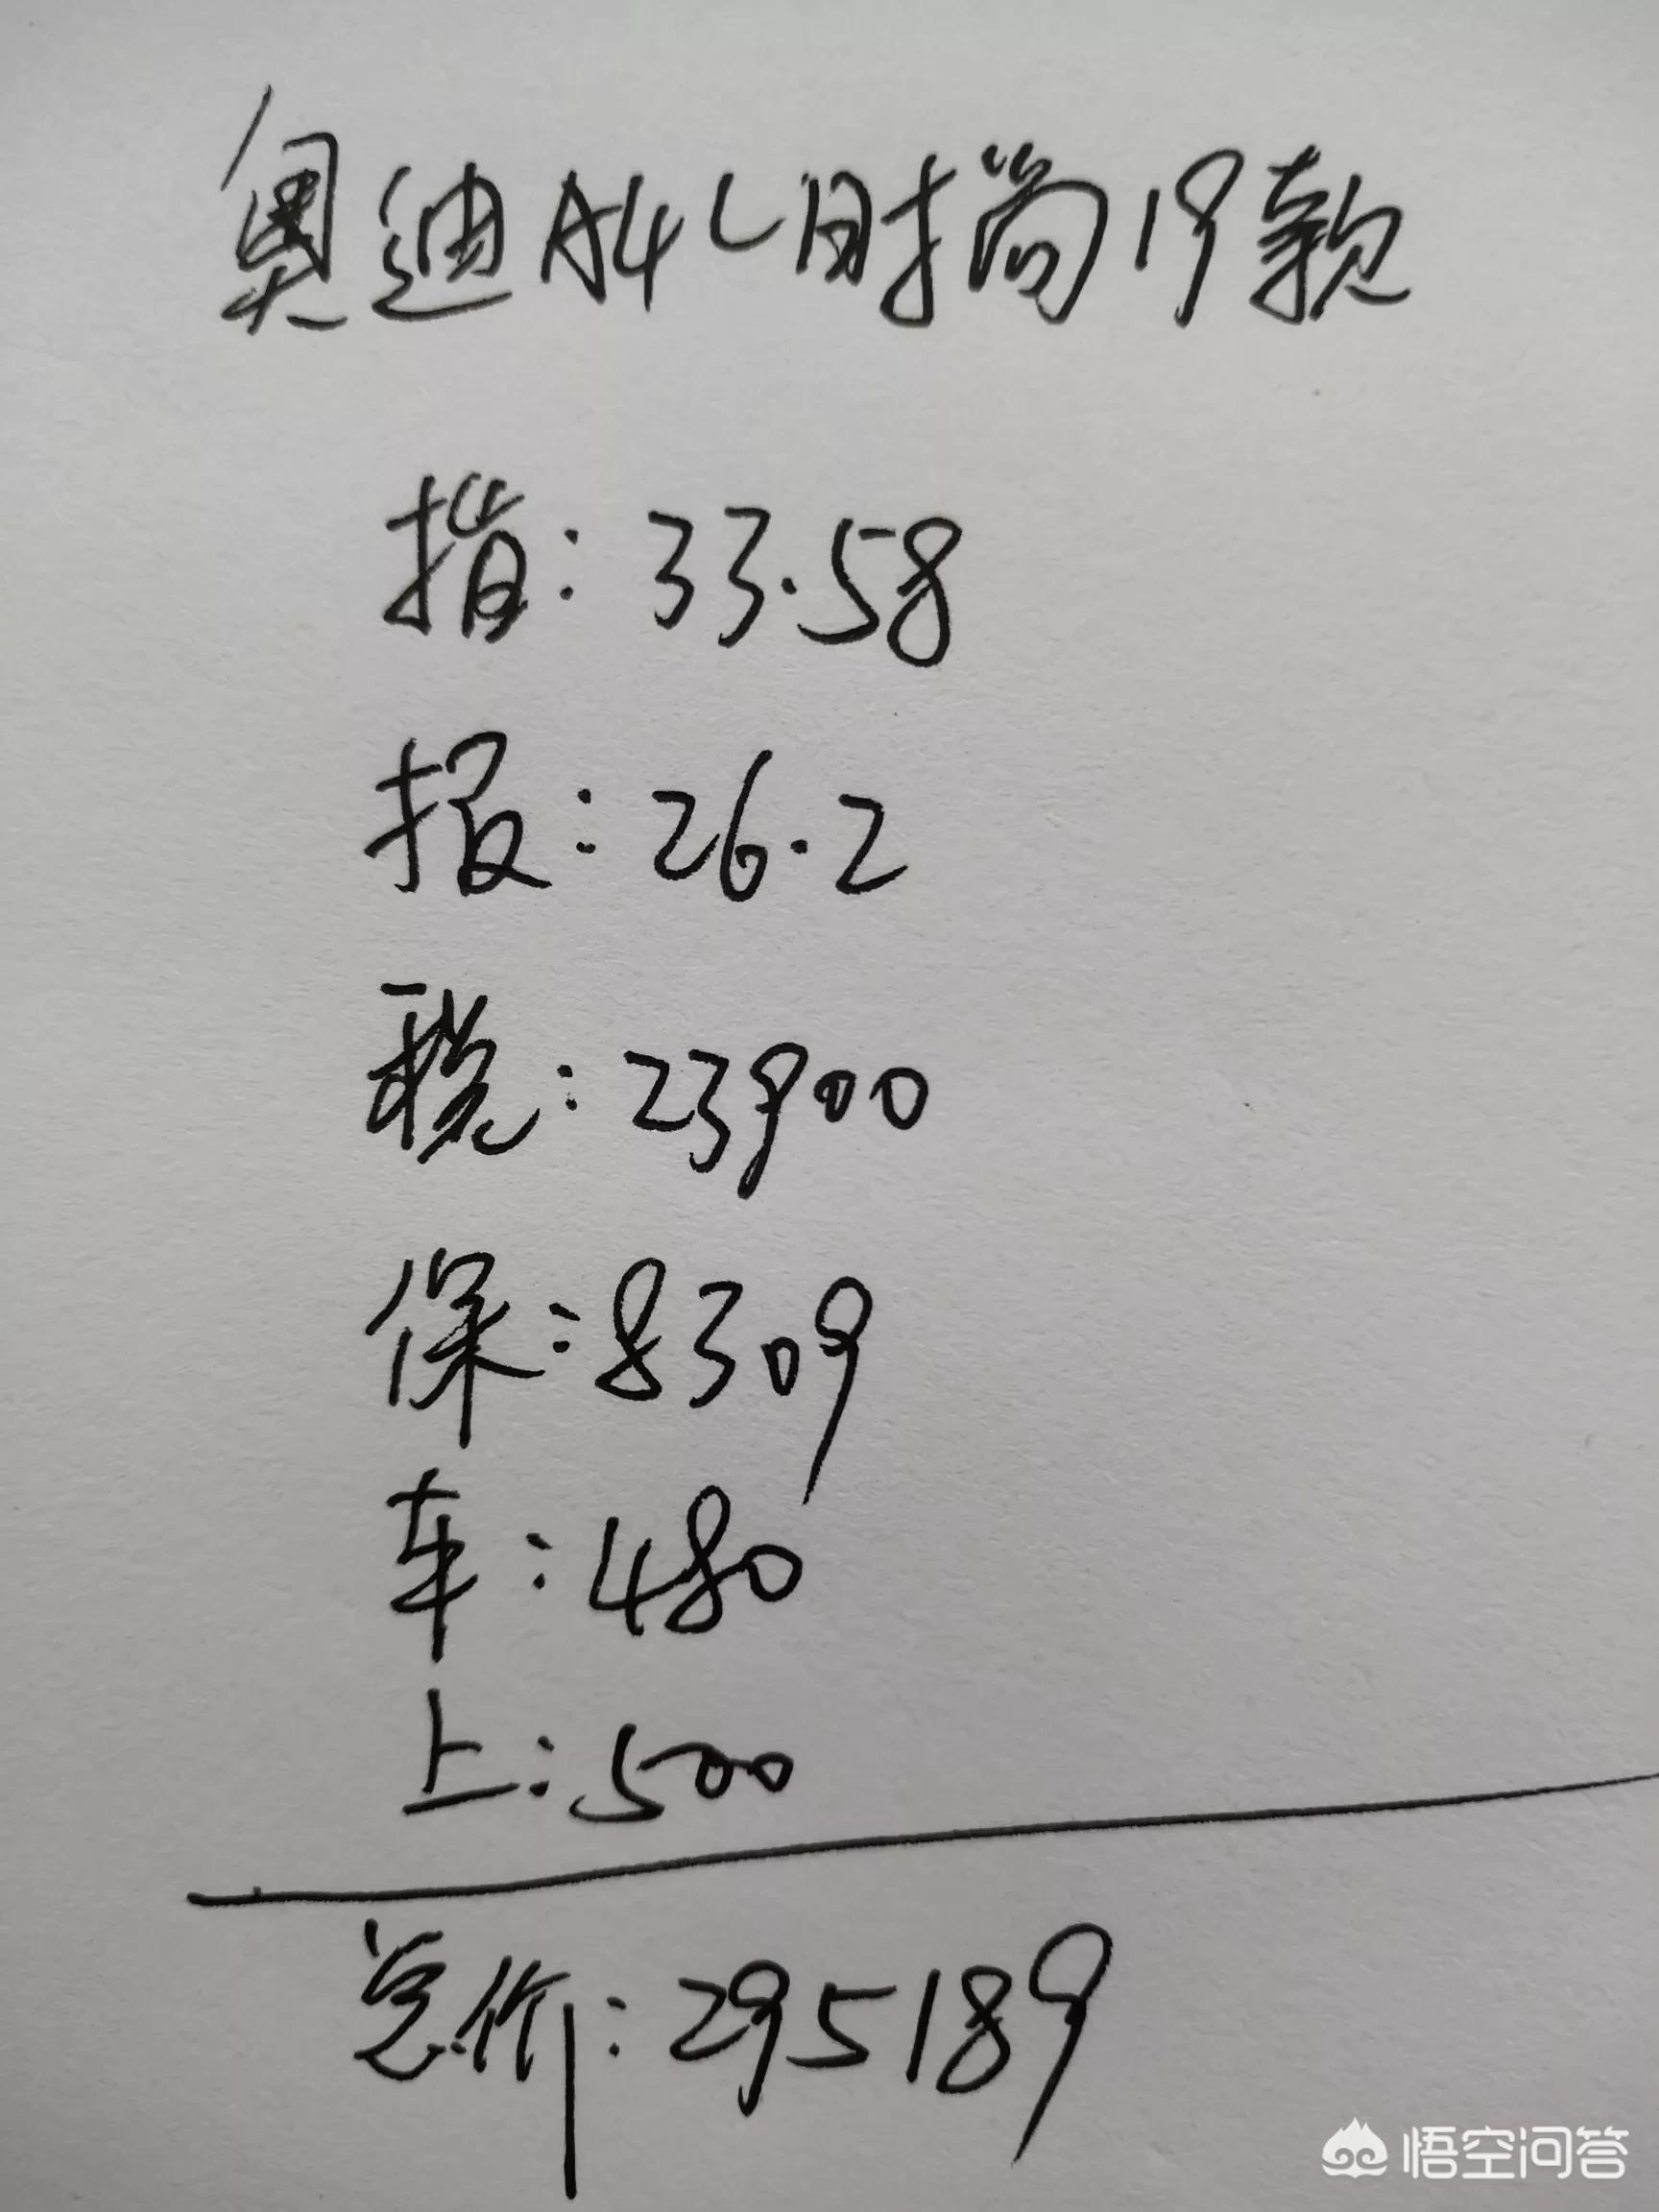 奥迪A4L时尚19款
指:33.58
报:26.2
税:23900
保:8309
车:480
上:500
总价:295189
悟空问答